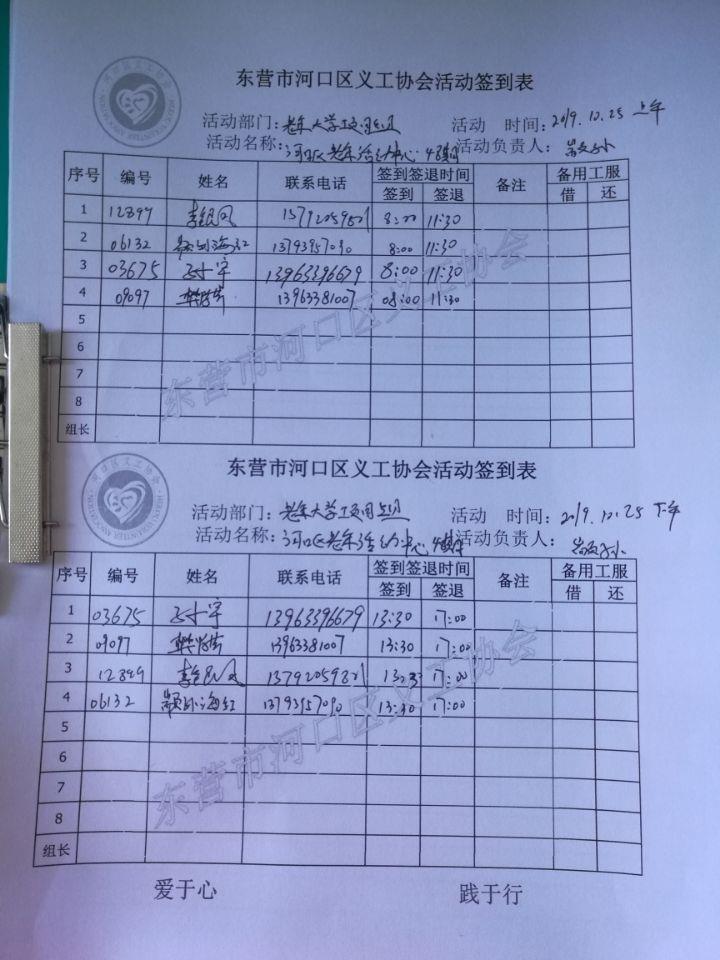 东营市河口区义工协会活动签到表
活动部门：老年大学 活动 时间：2019.10.25 上午
活动名称：河口区老年活动中心 活动负责人：
序号 编号 姓名 联系电话 签到签退时间 备注 备用工服
签到 签退 借 还
1 12899 李银凤 8:00 11:30
2 06132 海红 13793957090 8:00 11:30
3 03675 13963396679 8:00 11:30
4 09097 13963381007 08:00 11:30
5
6
7
8
组长
东营市河口区义工协会
东营市河口区义工协会活动签到表
活动部门：老年大学 活动 时间：2019.10.25 下午
活动名称：河口区老年活动中心 活动负责人：
序号 编号 姓名 联系电话 签到签退时间 备注 备用工服
签到 签退 借 还
1 03675 13963396679 13:30 17:00
2 09097 13963381007 13:30 17:00
3 12899 李银凤 17:00
4 06132 海红 13793957090 13:30 17:00
5
6
7
8
组长
东营市河口区义工协会
爱于心 践于行